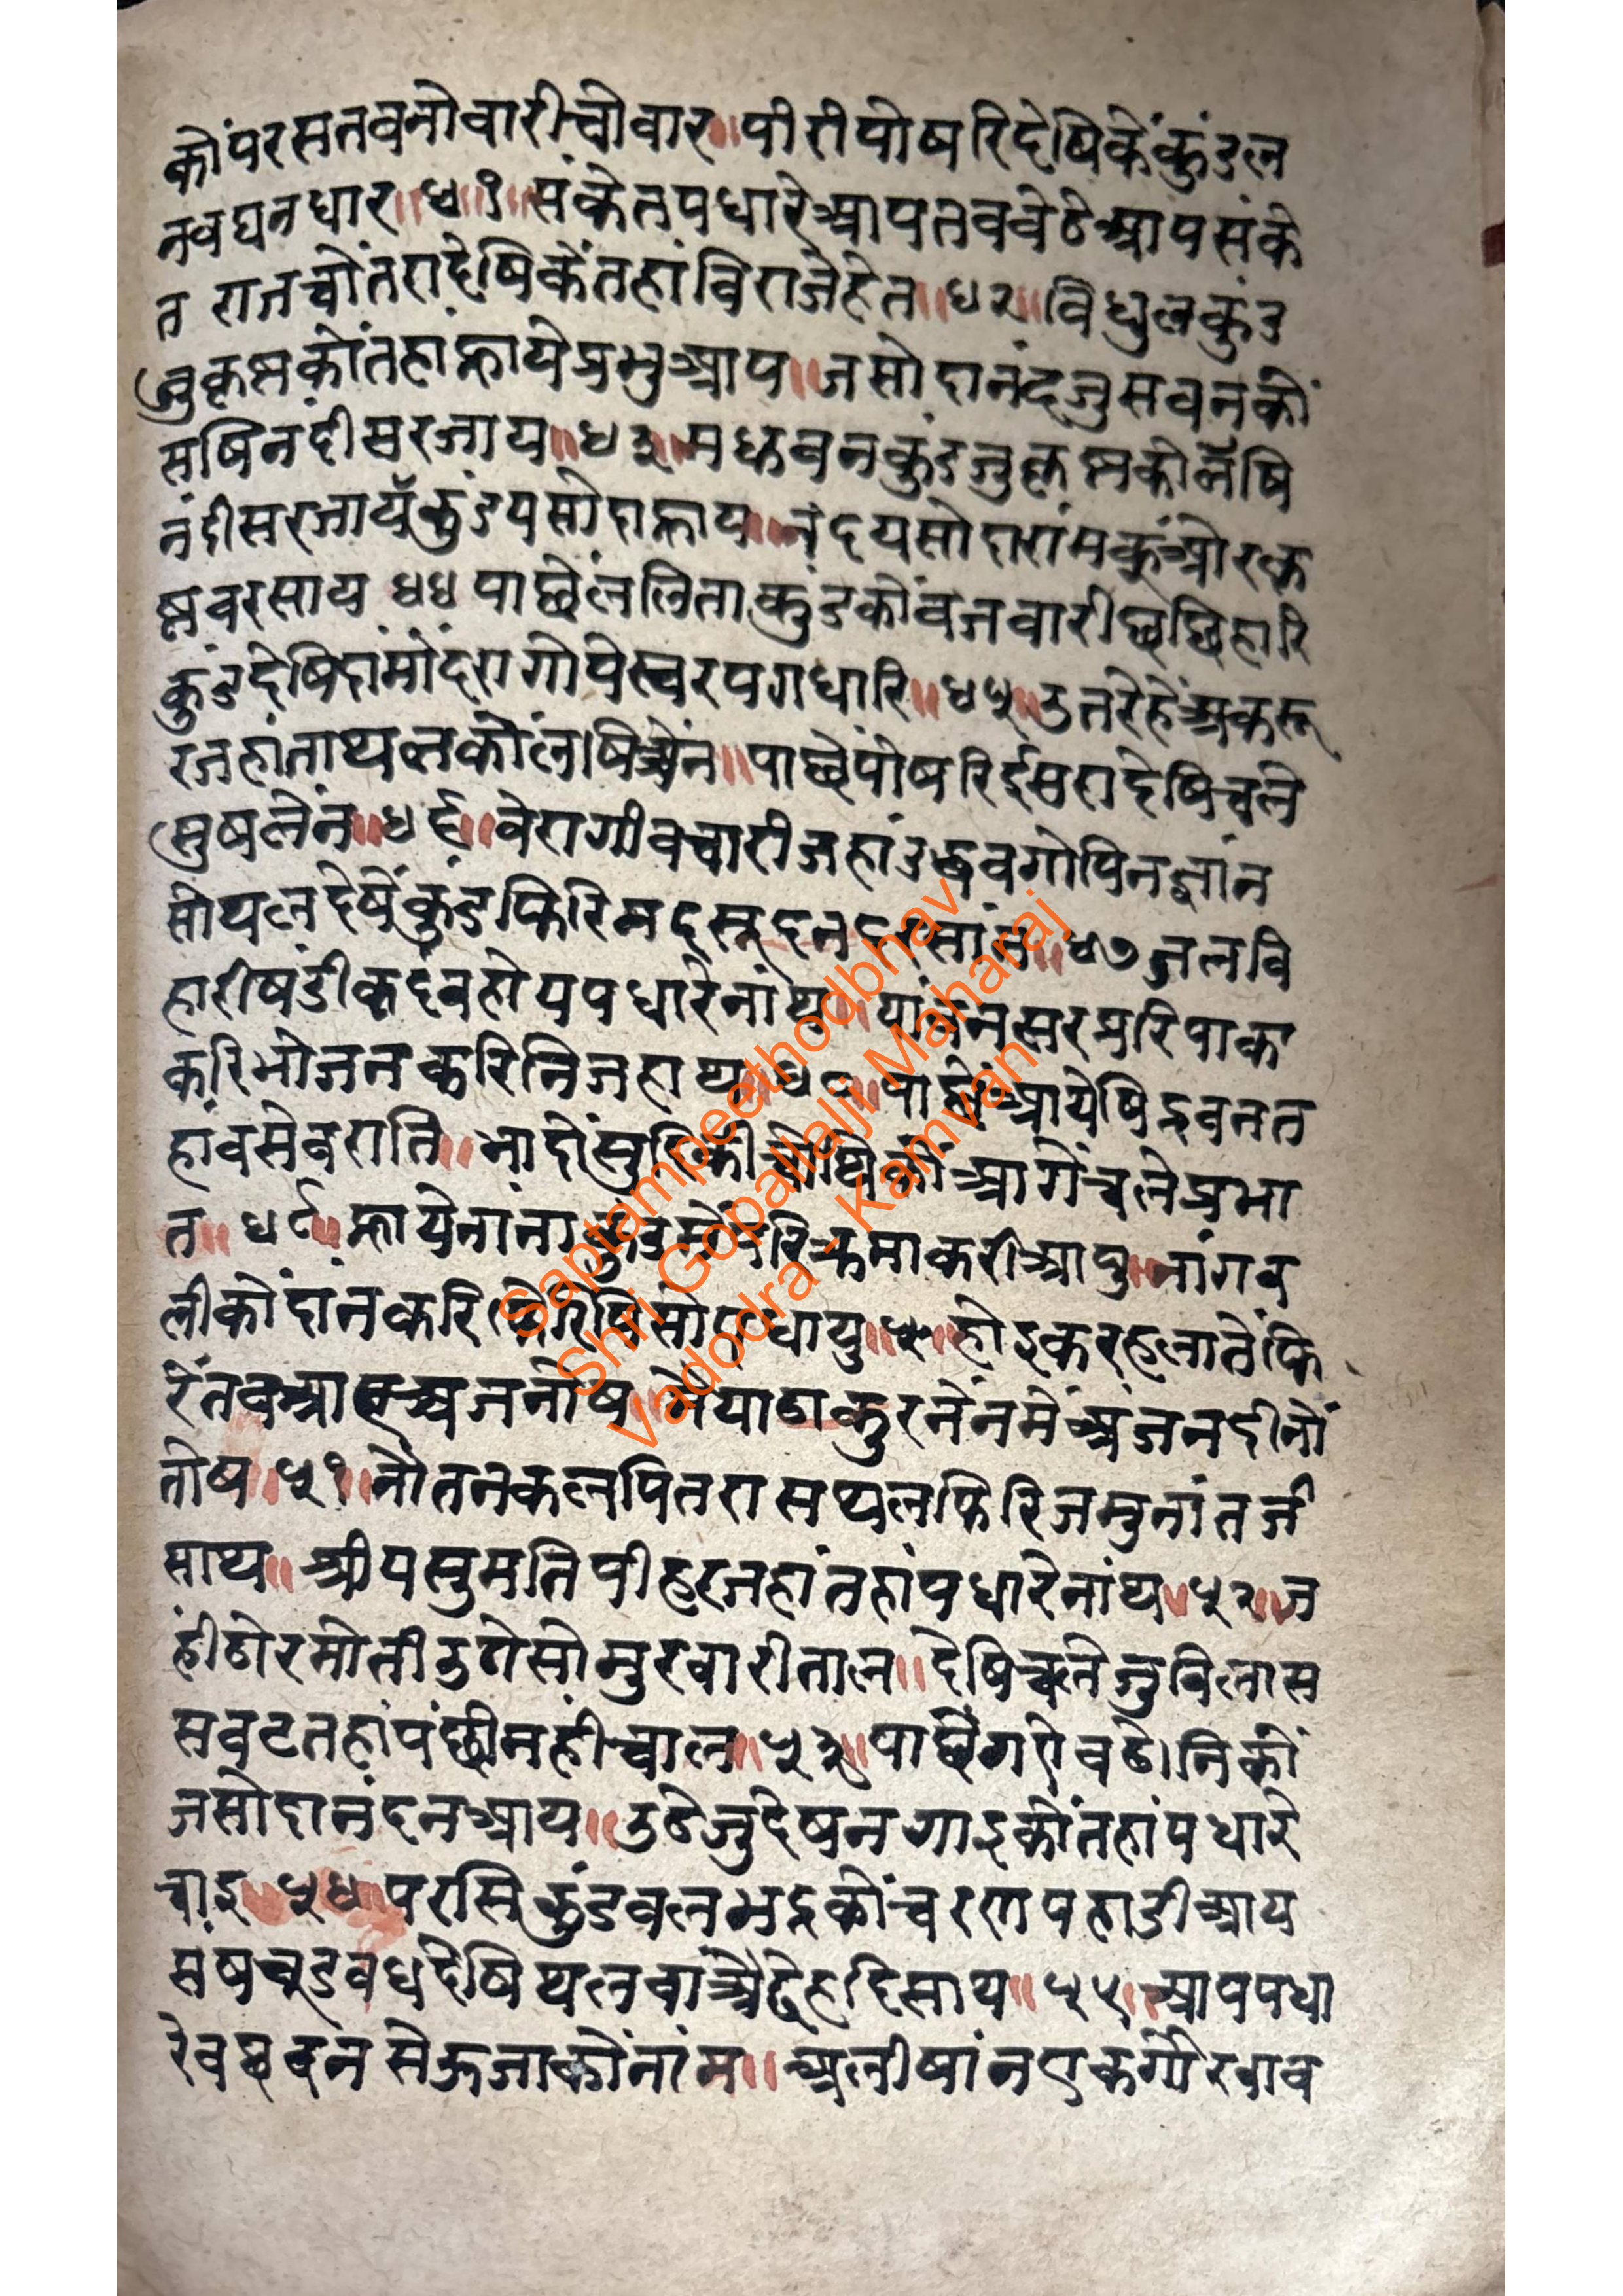 कोंपरसतवनोवारीचोवार॥पीरीपोषरिदेषिकेंकुंडल
नवघनधार॥४१॥संकेतपधारेआपतवबेठेआपसंके
त राजचोंतरादेषिकेंतहांबिराजेहेत॥४२॥बिधुलकुंड
जुकृष्णकोंतहांन्हायेप्रभुआप॥जसोदानंदजुसवनकों
सषिनंदीसरजाय॥४३॥मधवनकुंडजुकृष्णकोलेंषि
नंदीसरजायेंकुंडयसोदान्हाय॥नंदयसोदारांमकुंओरकृ
ष्णवरसाय ४४ पाछेंललिताकुंडकोंवजवारीछछिहारि
कुंडदेषिदांमोंदरागोपेस्वरपगधारि॥४५॥उतरेहेंअकरू
रजहांताथलकोंलषिअेंन॥पाछेंपोषरिईसरादेषिचले
सुषलेंन॥४६॥वेरागीवचारीजहांउद्धवगोपिनज्ञांन
सोथलदेषेंकुंडफिरिमदसूदनदरसांन॥४७जलवि
हारीषंडीकदंबहोयपधारेनांथ॥पांवनसरपरिपाक
करिभोजनकरिनिजहाथ॥४८॥पाछेंआयेषिद्रवनत
हांवसेबराति॥ आगेंचलेप्रभा
त॥ ४९॥न्हायेनांना परिक्रमाकरीआयु॥नांगव
लीकोंदांनकरि धायु॥५०॥होइकरहलातेंफि
रेंतवआ अंजनोष॥मैयाठाकुरनेंनमेंअंजनदीनों
तोष॥५१॥नौतनकलपितरासथलफिरिजमुनांतजी
साथ॥श्रीयसुमतिपीहरजहांतहांपधारेनांथ॥५२॥ज
हींठोरमोतीउगेसोमुरवारीताल॥देषिचलेजुबिलास
सवटतहांपंछीनहींचाल॥५३॥पाछेंगरोवठेानिकों
जसोदानंदनआय॥उठेजुदेषनगाइकोंतहांपधारे
चाइ॥५४॥परसिकुंडवलभद्रकोंचरणपहाडीआय
संषचुडवधदेषिथलवांअेंठेहदिसाय॥५५॥आपपधा
रेवछवनसेऊजाकोंनांम॥अलीषांनएकगोरवाव